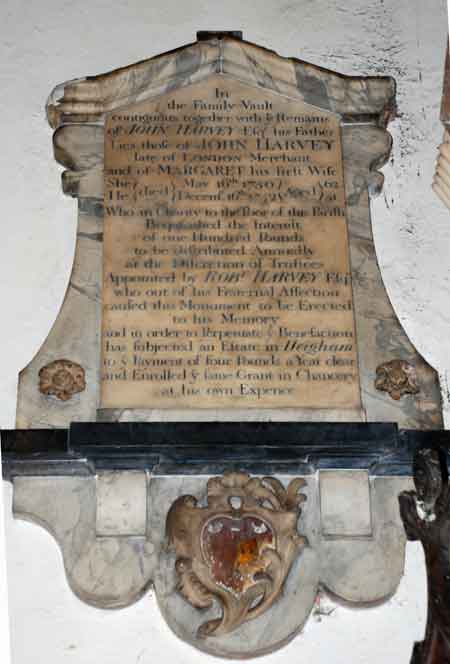 In
the Family Vault
contiguous together with ẏ Remains
of JOHN HARVEY Esqr his Father
Lies those of JOHN HARVEY
late of LONDON Merchant
and of MARGARET his first Wife
She } died { May 16th } Aged {
He } died { Decem } Aged {
Who in Charity to the Poor of this Parish
Bequeathed the Interest
of one Hundred Pounds
to be distributed Annually
at the Discretion of Trustees
Appointed by ROBt HARVEY Esqr
who out of his Fraternal Affection
caused this Monument to be Erected
to his Memory
and in order to Perpetuate ẏ Benefaction
has subjected an Estate in Heigham
to ẏ Payment of four Pounds a Year clear
and Enrolled ẏ same Grant in Chancery
at his own Expence